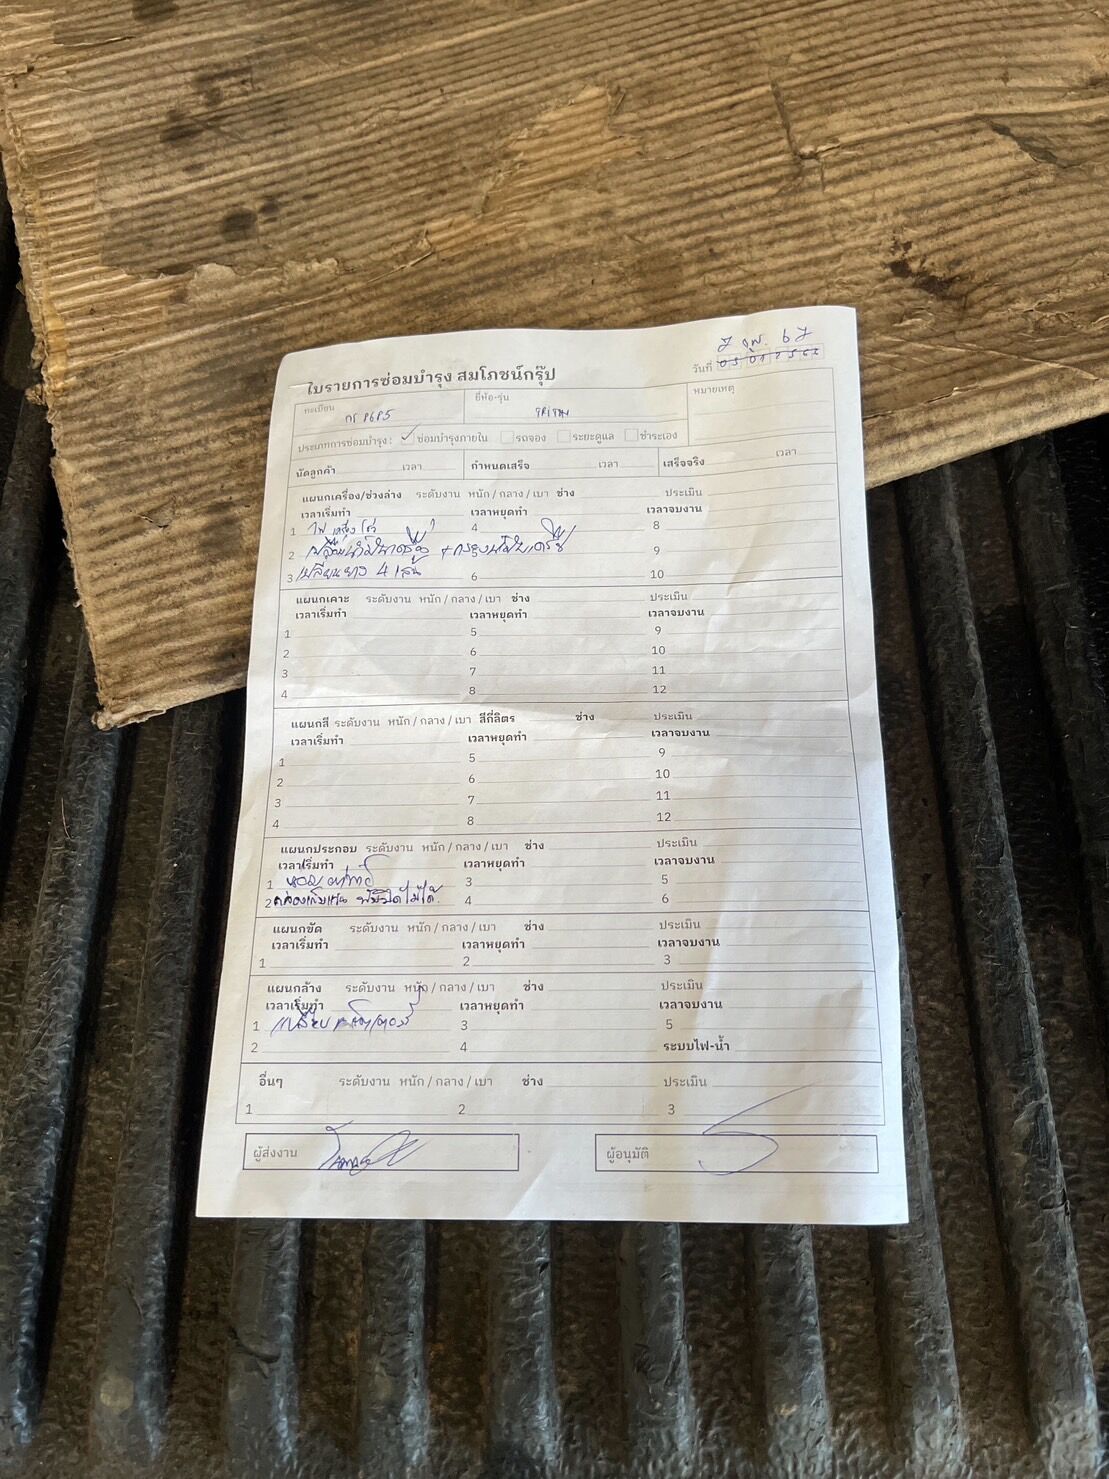 ใบรายการซ่อมบำรุง สมโภชน์กรุ๊ป
วันที่
ทะเบียน
ยี่ห้อ-รุ่น TRITON
หมายเหตุ
ประเภทการซ่อมบำรุง : ซ่อมบำรุงภายใน รถจอง ระยะดูแล ชำระเอง
นัดลูกค้า เวลา กำหนดเสร็จ เวลา เสร็จจริง เวลา
แผนกเครื่อง/ช่วงล่าง ระดับงาน หนัก / กลาง / เบา ช่าง ประเมิน
เวลาเริ่มทำ เวลาหยุดทำ เวลาจบงาน
1 ไฟเครื่องโชว์ 4 8
2 เปลี่ยนน้ำมันเครื่อง + กรองน้ำมันเครื่อง 9
3 เปลี่ยนยาง 4 เส้น 6 10
แผนกเคาะ ระดับงาน หนัก / กลาง / เบา ช่าง ประเมิน
เวลาเริ่มทำ เวลาหยุดทำ เวลาจบงาน
1 5 9
2 6 10
3 7 11
4 8 12
แผนกสี ระดับงาน หนัก / กลาง / เบา สีกี่ลิตร ช่าง ประเมิน
เวลาเริ่มทำ เวลาหยุดทำ เวลาจบงาน
1 5 9
2 6 10
3 7 11
4 8 12
แผนกประกอบ ระดับงาน หนัก / กลาง / เบา ช่าง ประเมิน
เวลาเริ่มทำ เวลาหยุดทำ เวลาจบงาน
1 3 5
2 ปิดไม่ได้ 4 6
แผนกขัด ระดับงาน หนัก / กลาง / เบา ช่าง ประเมิน
เวลาเริ่มทำ เวลาหยุดทำ เวลาจบงาน
1 2 3
แผนกล้าง ระดับงาน หนัก / กลาง / เบา ช่าง ประเมิน
เวลาเริ่มทำ เวลาหยุดทำ เวลาจบงาน
1 3 5
2 4 ระบบไฟ-น้ำ
อื่นๆ ระดับงาน หนัก / กลาง / เบา ช่าง ประเมิน
1 2 3
ผู้ส่งงาน ผู้อนุมัติ